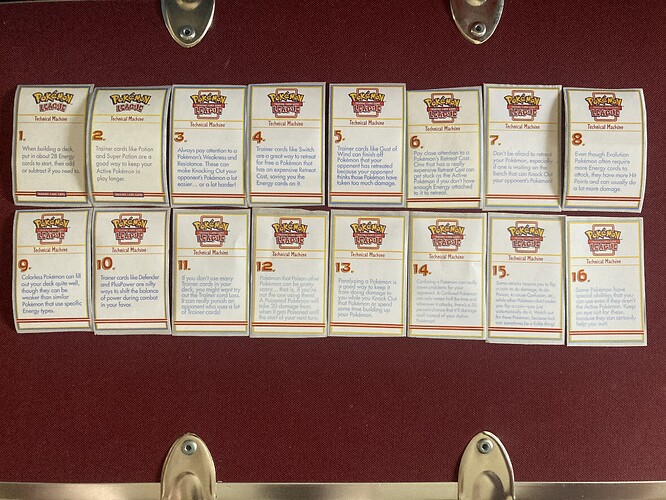 POKéMON
LEAGUE
Technical Machine
1.
When building a deck,
put in about 28 Energy
cards to start, then add
or subtract if you need to.
POKéMON
LEAGUE
Technical Machine
2.
Trainer cards like Potion
and Super Potion are a
good way to keep your
Active Pokémon in
play longer.
POKéMON
LEAGUE
Technical Machine
3.
Always pay attention to a
Pokémon's Weakness and
Resistance. These can
make Knocking Out your
opponent's Pokémon a lot
easier... or a lot harder!
POKéMON
LEAGUE
Technical Machine
4.
Trainer cards like Switch
are a great way to retreat
for free a Pokémon that
has an expensive Retreat
Cost, saving you the
Energy cards on it.
POKéMON
LEAGUE
Technical Machine
5.
Trainer cards like Gust of
Wind can finish off
Pokémon that your
opponent has retreated
because your opponent
thinks those Pokémon have
taken too much damage.
POKéMON
LEAGUE
Technical Machine
6.
Pay close attention to a
Pokémon's Retreat Cost.
One that has a really
expensive Retreat Cost can
get stuck as the Active
Pokémon if you don't have
enough Energy attached
to it to retreat.
POKéMON
LEAGUE
Technical Machine
7.
Don't be afraid to retreat
your Pokémon, especially
if one is waiting on the
Bench that can Knock Out
your opponent's Pokémon!
POKéMON
LEAGUE
Technical Machine
8.
Even though Evolution
Pokémon often require
more Energy cards to
attack, they have more Hit
Points and can usually do
a lot more damage.
POKéMON
LEAGUE
Technical Machine
9.
Colorless Pokémon can fill
out your deck quite well,
though they can be
weaker than similar
Pokémon that use specific
Energy types.
POKéMON
LEAGUE
Technical Machine
10.
Trainer cards like Defender
and PlusPower are nifty
ways to shift the balance
of power during combat
in your favor.
POKéMON
LEAGUE
Technical Machine
11.
If you don't use many
Trainer cards in your
deck, you might want to try
out the Trainer card Lass.
It can really punish an
opponent who uses a lot
of Trainer cards!
POKéMON
LEAGUE
Technical Machine
12.
Pokémon that Poison other
Pokémon can be pretty
scary... that is, if you're
not the one using them!
A Poisoned Pokémon will
take 20 damage from
when it gets Poisoned until
the start of your next turn.
POKéMON
LEAGUE
Technical Machine
13.
Paralyzing a Pokémon is
a good way to keep it
from doing damage to
you while you Knock Out
that Pokémon or spend
some time building up
your Pokémon.
POKéMON
LEAGUE
Technical Machine
14.
Confusing a Pokémon can really
cause problems for your
opponent.
POKéMON
LEAGUE
Technical Machine
15.
Some attacks require you to flip
POKéMON
LEAGUE
Technical Machine
16
Some Pokémon have
special abilities that you
can use even if they aren't
the Active Pokémon. Keep
an eye out for these,
because they can seriously
help you out!